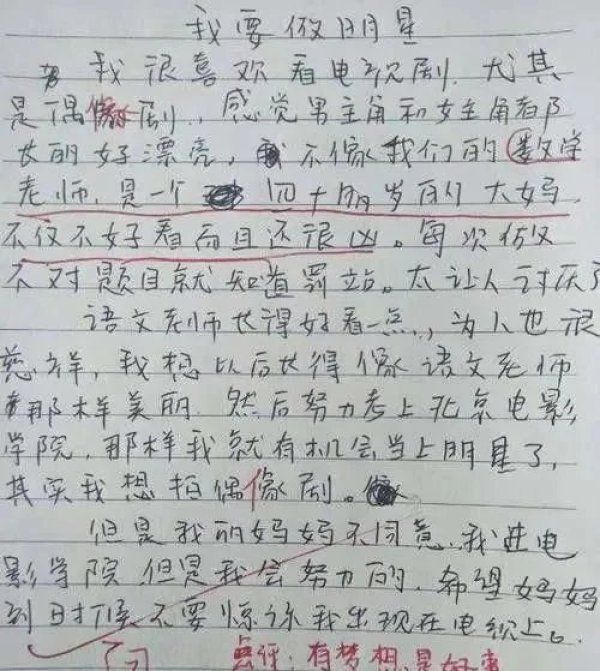 我要做明星
我很喜欢看电视剧.尤其
是偶像剧,感觉男主角和女主角都
长的好漂亮,不像我们的数学
老师,是一个四十多岁的大妈,
不仅不好看而且还很凶。每次做
不对题目就知道罚站。太让人讨厌了
语文老师长得好看一点,为人也很
慈祥,我想以后长得像语文老师
那样美丽.然后努力考上北京电影
学院,那样我就有机会当上明星了,
其实我想拍偶像剧。
但是我的妈妈不同意.我进电
影学院但是我会努力的,希望妈妈
到时候不要惊讶我出现在电视上。
点评:有梦想是好事